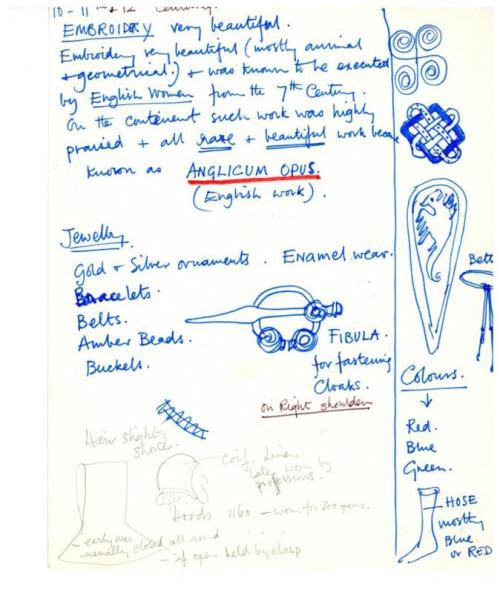 10 - 11 th + 12 Century.
EMBROIDERY very beautiful.
Embroidery very beautiful (mostly animal
+ geometrical.) + was known to be executed
by English Women from the 7th Century.
On the contenent such work was highly
praised + all rare + beautiful work became
known as ANGLICUM OPUS.
(English work).
Jewellry.
Gold + Silver ornaments. Enamel wear.
Baracelets.
Belts.
Amber Beads.
Buckels.
FIBULA.
for fastening
Cloaks.
on Right shoulder
Hair slightly
shorter.
Coif. Linen.
later worn by
professions.
Hoods 1160 - worn for 300 years.
- early ones
usually closed all round
- if open held by clasp
Belt
Colours.
↓
Red.
Blue
Green.
HOSE
mostly
Blue
or RED